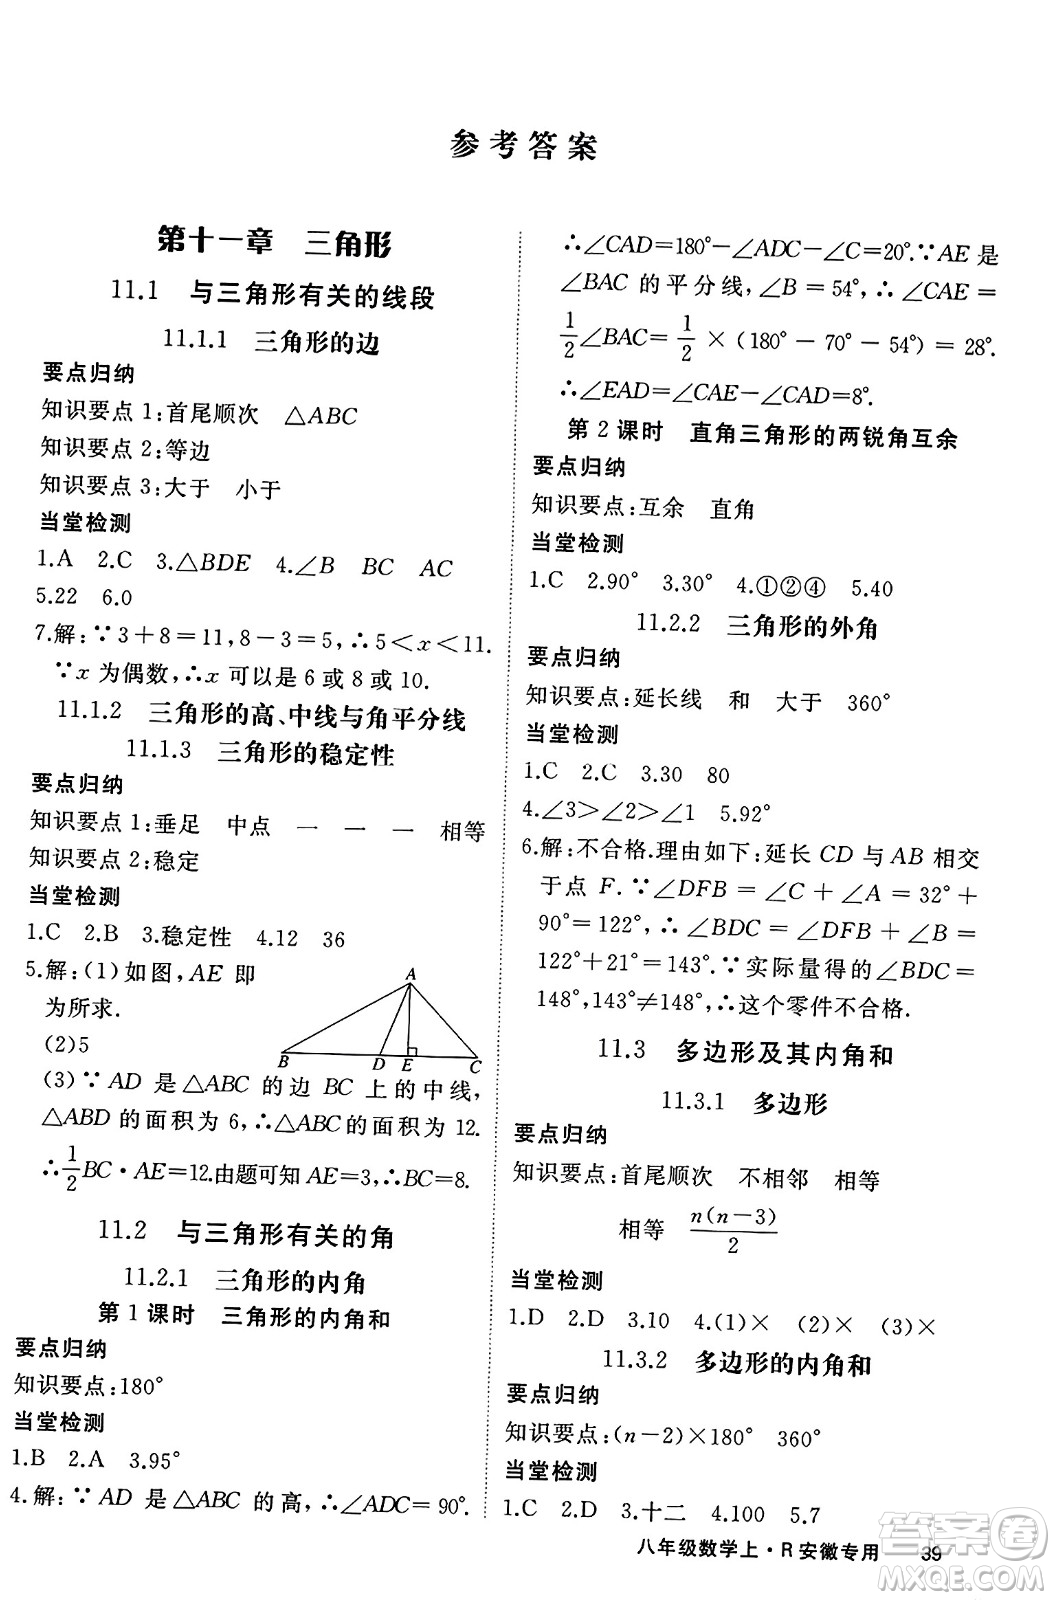 参考答案
第十一章 三角形
11.1 与三角形有关的线段
11.1.1 三角形的边
要点归纳
知识要点 1:首尾顺次 △ABC
知识要点 2:等边
知识要点 3:大于 小于
当堂检测
1.A 2.C 3.△BDE 4.∠B BC AC
5.22 6.0
7.解:∵3+8=11,8-3=5,∴5<x<11.
∵x 为偶数,∴x 可以是 6 或 8 或 10.
11.1.2 三角形的高、中线与角平分线
11.1.3 三角形的稳定性
要点归纳
知识要点 1:垂足 中点 一 一 一 相等
知识要点 2:稳定
当堂检测
1.C 2.B 3.稳定性 4.12 36
5.解:(1)如图,AE 即
为所求.
(2)5
A
B D E C
(3)∵AD 是△ABC 的边 BC 上的中线,
△ABD 的面积为 6,∴△ABC 的面积为 12.
∴1/2 BC·AE=12.由题可知 AE=3,∴BC=8.
11.2 与三角形有关的角
11.2.1 三角形的内角
第 1 课时 三角形的内角和
要点归纳
知识要点:180°
当堂检测
1.B 2.A 3.95°
4.解:∵AD 是△ABC 的高,∴∠ADC=90°.
∴∠CAD=180°-∠ADC-∠C=20°.∵AE 是
∠BAC 的平分线,∠B=54°,∴∠CAE=
1/2 ∠BAC=1/2×(180°-70°-54°)=28°.
∴∠EAD=∠CAE-∠CAD=8°.
第 2 课时 直角三角形的两锐角互余
要点归纳
知识要点:互余 直角
当堂检测
1.C 2.90° 3.30° 4.①②④ 5.40
11.2.2 三角形的外角
要点归纳
知识要点:延长线 和 大于 360°
当堂检测
1.C 2.C 3.30 80
4.∠3>∠2>∠1 5.92°
6.解:不合格.理由如下:延长 CD 与 AB 相交
于点 F.∵∠DFB=∠C+∠A=32°+
90°=122°,∴∠BDC=∠DFB+∠B=
122°+21°=143°.∵实际量得的∠BDC=
148°,143°≠148°,∴这个零件不合格.
11.3 多边形及其内角和
11.3.1 多边形
要点归纳
知识要点:首尾顺次 不相邻 相等
相等 n(n-3)/2
当堂检测
1.D 2.D 3.10 4.(1)× (2)× (3)×
11.3.2 多边形的内角和
要点归纳
知识要点:(n-2)×180° 360°
当堂检测
1.C 2.D 3.十二 4.100 5.7
八年级数学上·R 安徽专用 39
答案卷
MXQE.COM